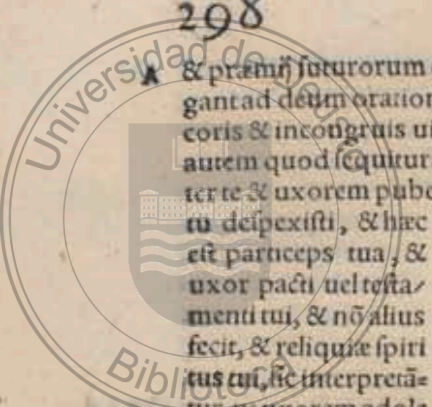 298
A & præmij futurorum
gant ad deum oration
coris & incongruis ui
autem quod sequitur
ter te & uxorem pube
tu despexisti, & hæc
est particeps tua, &
uxor pacti uel testa/
menti tui, & nō alius
fecit, & reliquiæ spiri
tus tui, sic interpretā=
Universidad de
Biblioteca